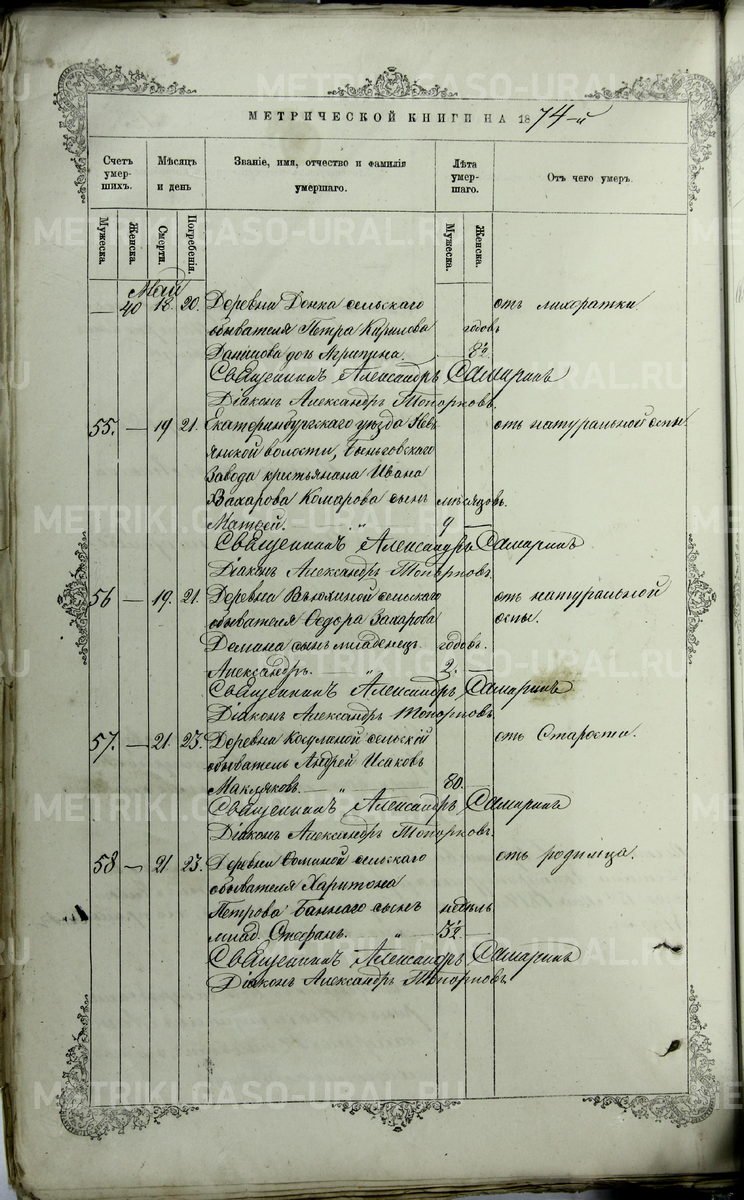 МЕТРИЧЕСКОЙ КНИГИ НА 1874-й
Счетъ умершихъ. Мѣсяцъ и день Званіе, имя, отчество и фамилія умершаго. Лѣта умершаго. Отъ чего умеръ.
Мужеска. Женска. Смерти. Погребенія. Мужеска. Женска.
Май
— 40 18. 20. Деревни сельскаго отъ лихоратки.
обывателя Петра Кирилова годовъ
Данилова дочь Агрипина. 8½
Священникъ Александръ Самаринъ
Діаконъ Александръ Топорковъ.
55. — 19 21. Екатеринбургскаго уѣзда Невь отъ натуральной оспы
янской волости, Быньговскаго
Завода крестьянина Ивана
Захарова Комарова сынъ мѣсяцовъ.
Матѳей. „ 9 —
Священникъ Александръ Самаринъ
Діаконъ Александръ Топорковъ.
56 — 19. 21. Деревни сельскаго отъ натуральной
обывателя Ѳедора Захарова оспы.
сынъ младенецъ годовъ.
Александръ. „ 2. —
Священникъ Александръ Самаринъ
Діаконъ Александръ Топорковъ
57. — 21. 23. Деревни Косулиной сельскій отъ Старости.
обыватель Андрей Исаковъ
80. —
Священникъ Александръ Самаринъ
Діаконъ Александръ Топорковъ.
58 — 21 23. Деревни сельскаго отъ родимца.
обывателя Харитона
Петрова Баннаго сынъ недѣль
млад. Стефанъ. „ 5½
Священникъ Александръ Самаринъ
Діаконъ Александръ Топорковъ.
METRIKI.GASO-URAL.RU